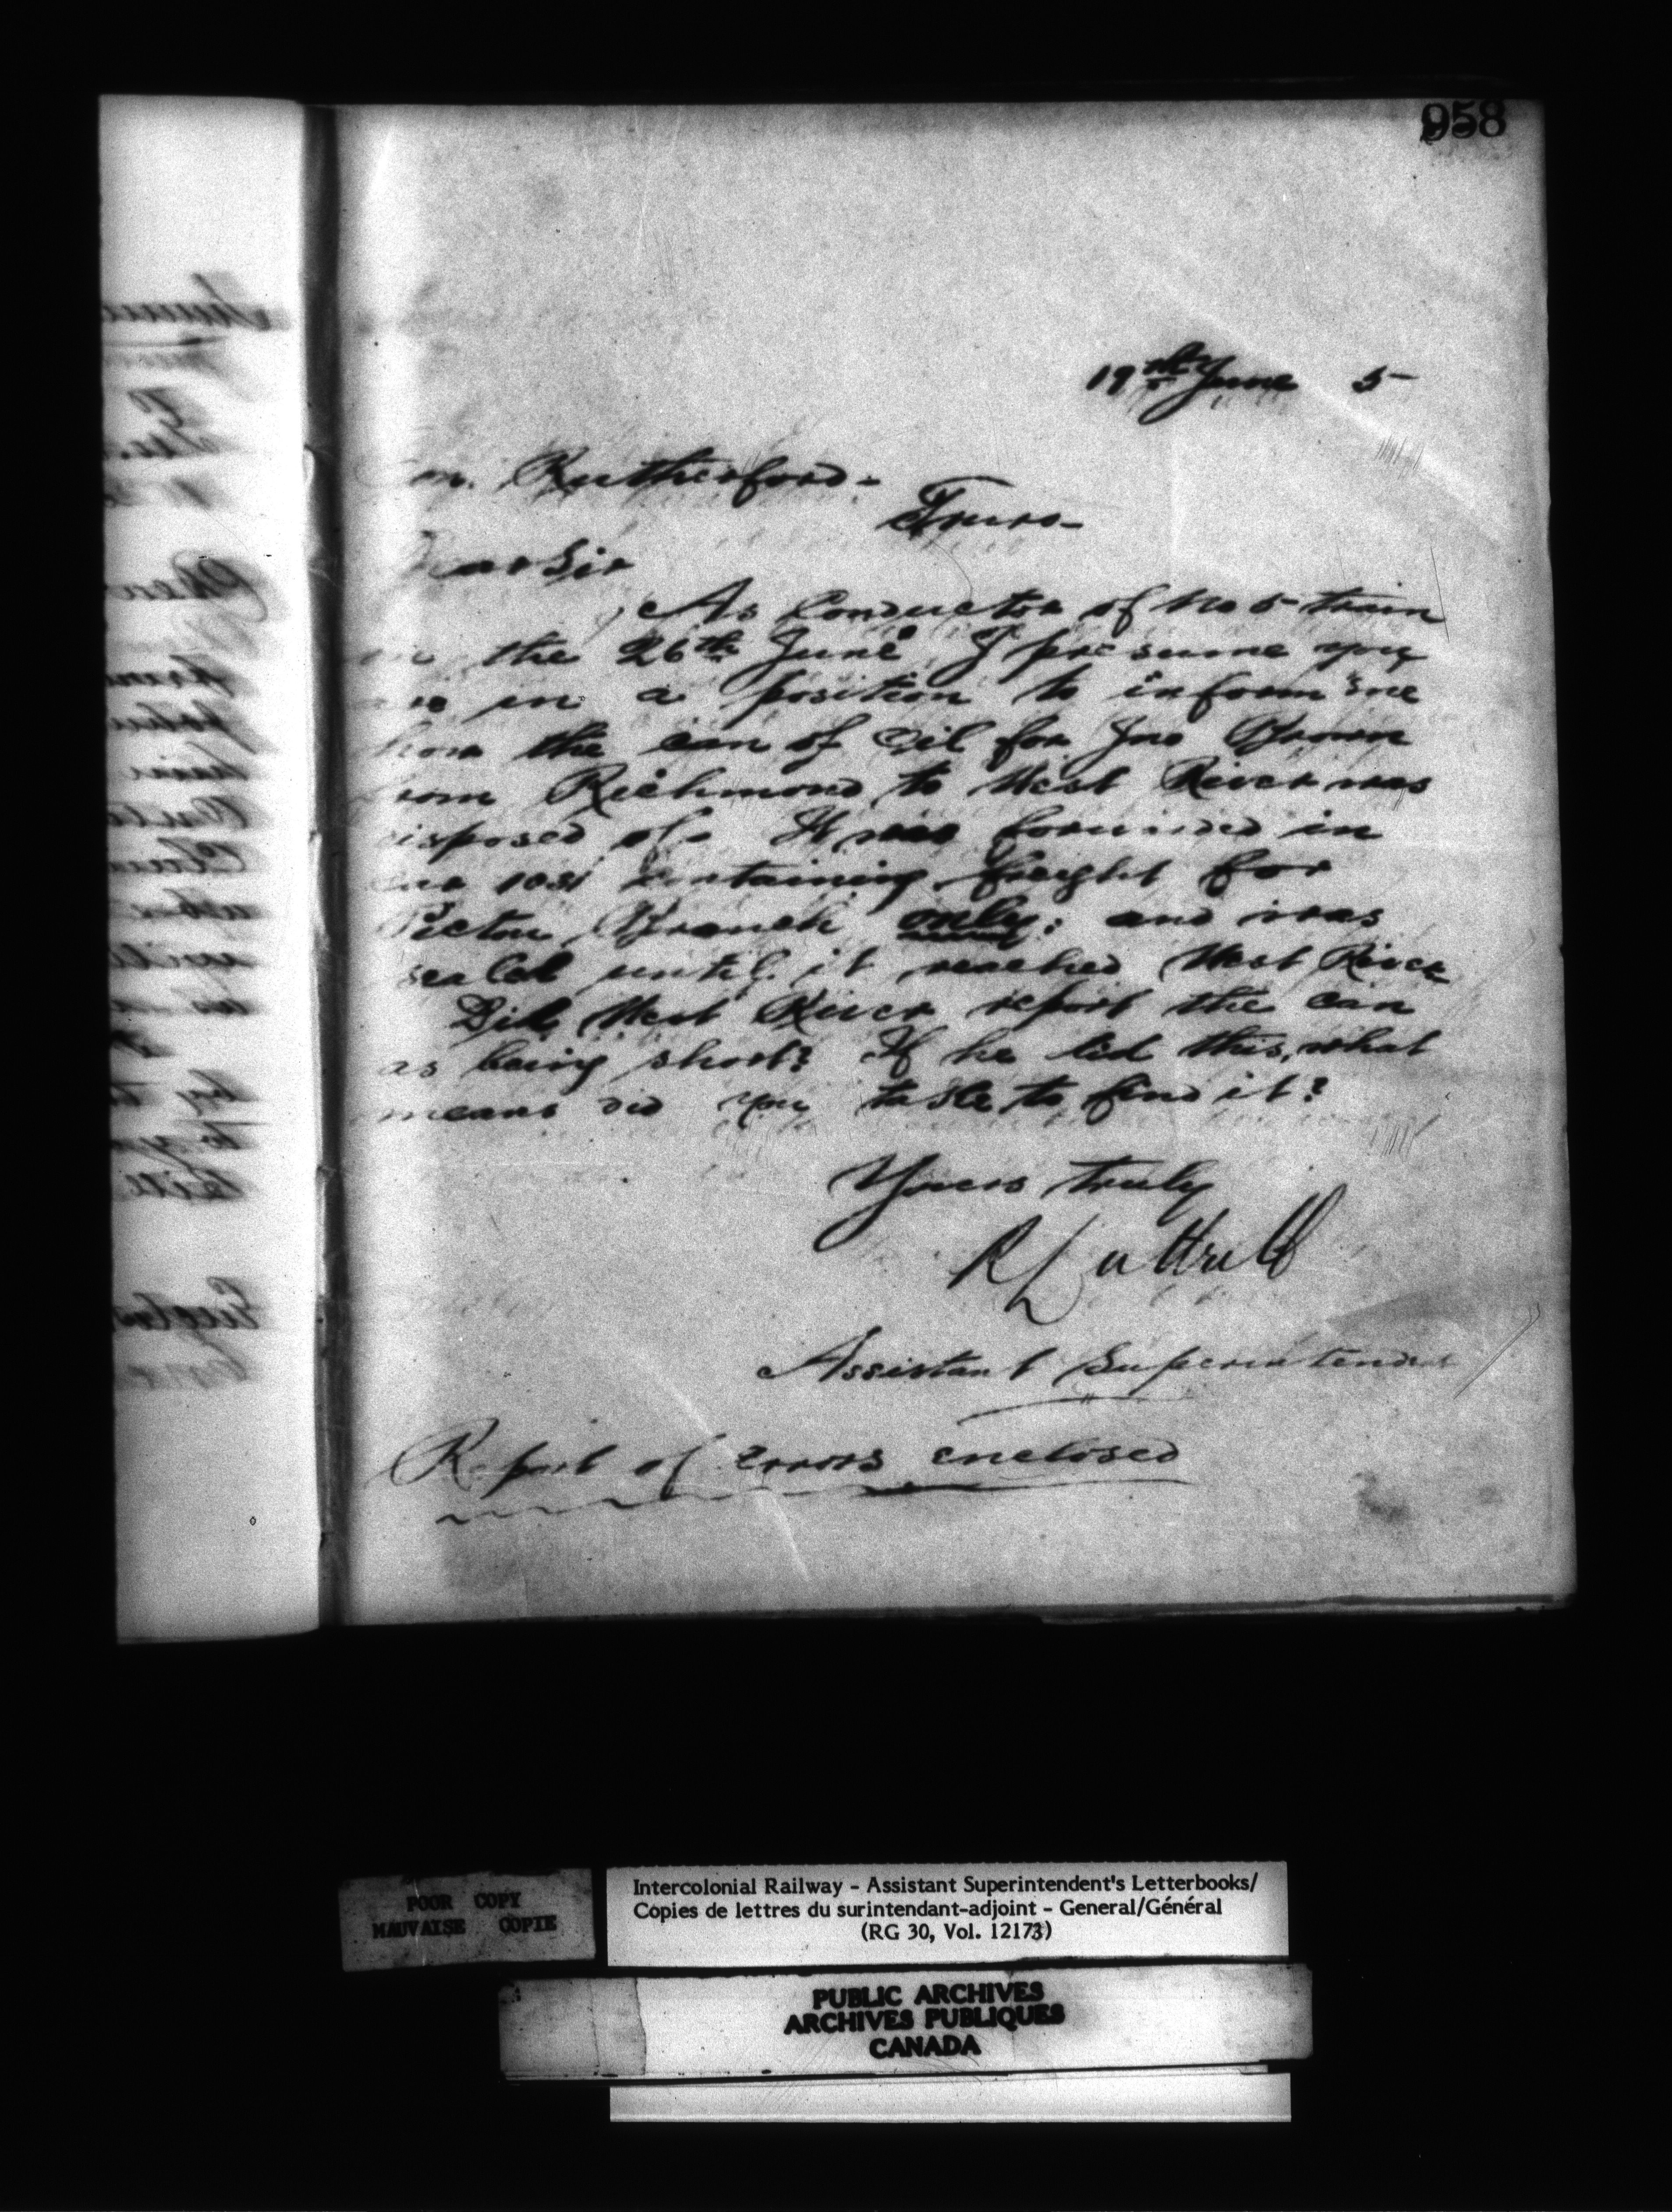 958
19th June 5
Rutherford -
Truro -
Dear Sir
As Conductor of No 5 train
on the 26th June I presume you
are in a position to inform me
how the can of Oil for Jno Brown
from Richmond to West River was
disposed of. It was forwarded in
car 1031 containing freight for
Pictou Branch only; and was
sealed until it reached West River
Did West River report the can
as being short? If he did this, what
means did you take to find it?
Yours truly
R Luttrell
Assistant Superintendent
Report of Errors enclosed
POOR COPY
MAUVAISE COPIE
Intercolonial Railway - Assistant Superintendent's Letterbooks/
Copies de lettres du surintendant-adjoint - General/Général
(RG 30, Vol. 12173)
PUBLIC ARCHIVES
ARCHIVES PUBLIQUES
CANADA